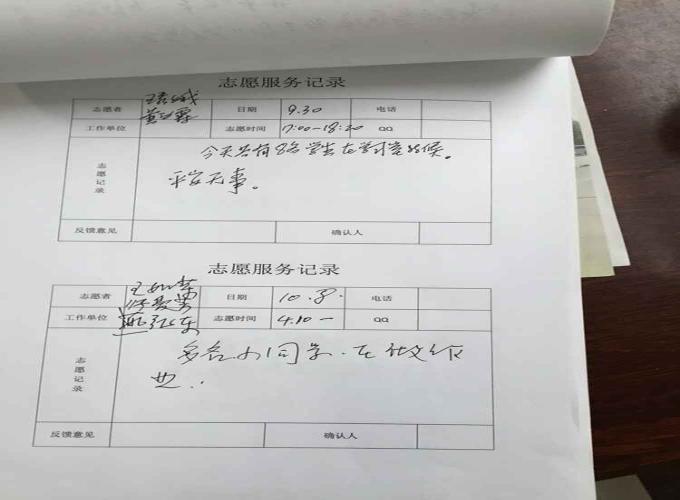 志愿服务记录
志愿者 日期 9.30 电话
工作单位 志愿时间 17:00-18:20 QQ
志愿记录
今天共有8名学生在学习室等候。
平安无事。
反馈意见 确认人
志愿服务记录
志愿者 日期 10.8. 电话
工作单位 志愿时间 4.10一 QQ
志愿记录
多名小同学.在做作
业..
反馈意见 确认人